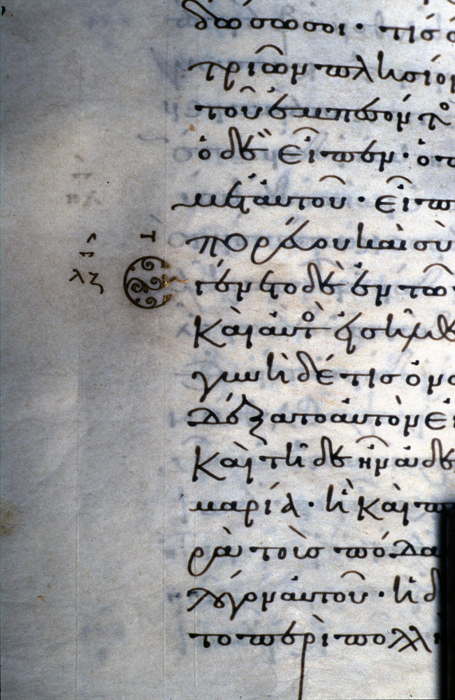 δώσω σοι· τίς ο
τριῶν πλησίον
τοῦ ἐμπεσόντ
ὁ δὲ εἶπεν· ὁ π
μετ' αὐτοῦ· εἶπ
πορεύου καὶ σὺ
λζ Ἐγένετο δὲ ἐν τῶ
καὶ αὐτὸς εἰσῆλθε
γυνὴ δέ τις ὀνο
δέξατο αὐτὸν εἰ
καὶ τῆδε ἦν ἀδε
μαρία· ἣ καὶ π
ρὰ τοὺς πόδα
λόγον αὐτοῦ· ἡ δ
το περὶ πολλὴ